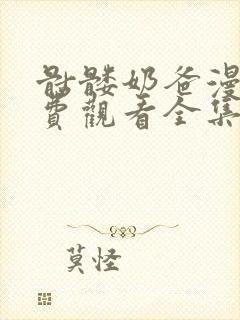 骷髏奶爸漫
費觀看全集
莫怪